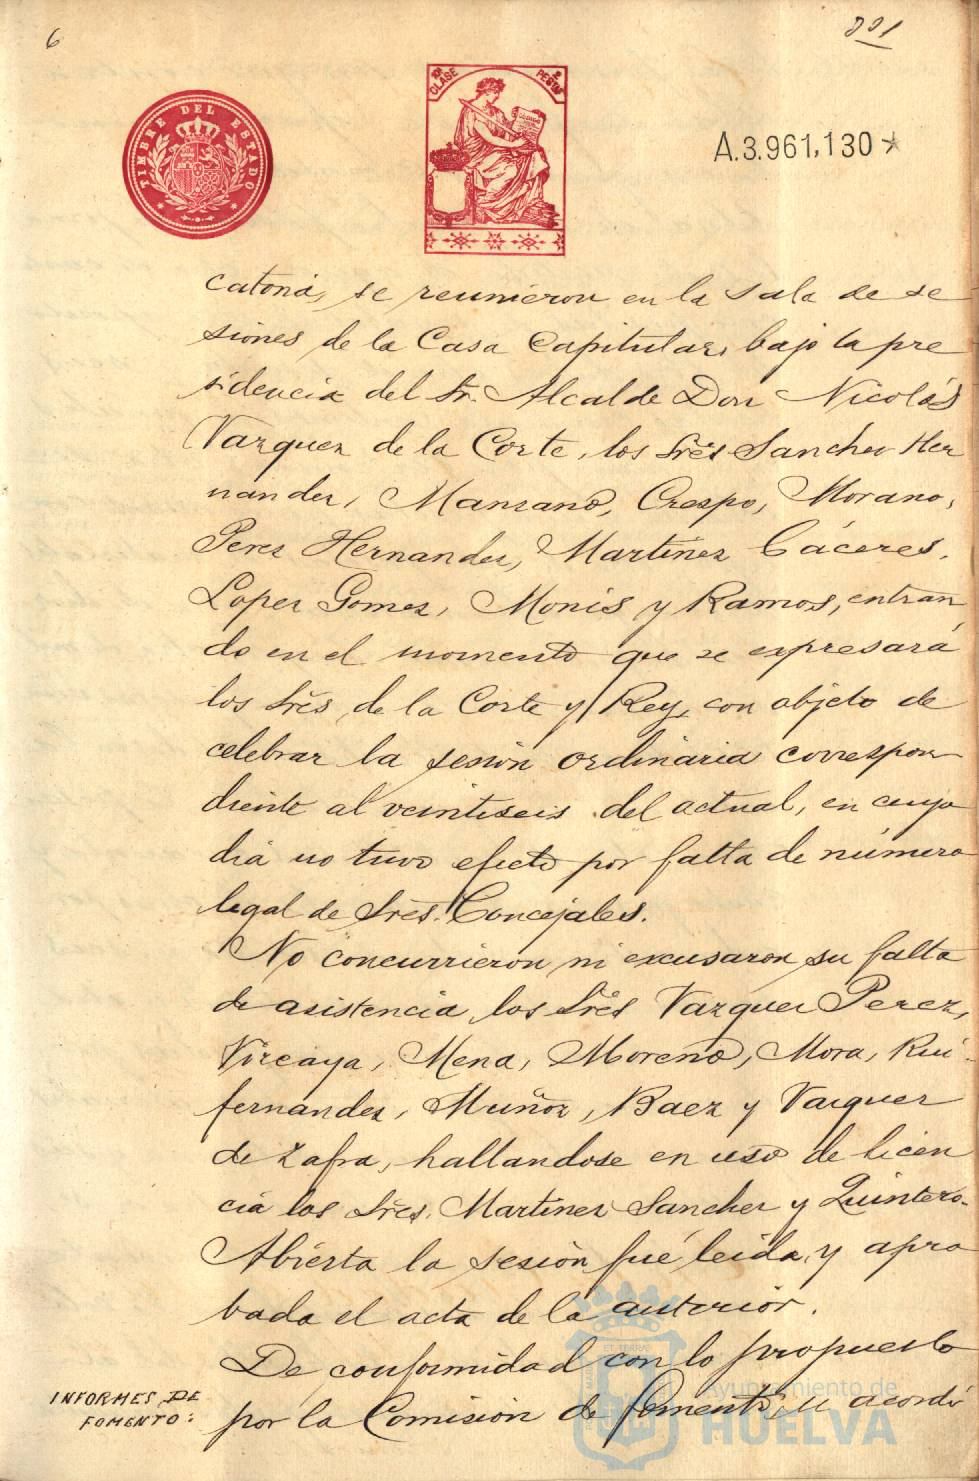 6
TIMBRE DEL ESTADO
10ª CLASE
2 PESTAS
A.3.961,130*
catoria, se reunieron en la sala de se
siones de la Casa Capitular, bajo la pre
sidencia del Sr. Alcalde Don Nicolás
Vazquez de la Corte, los Srēs Sanchez Her
nandez, Manzano, Crespo, Morano,
Perez Hernandez, Martinez Cáceres,
Lopez Gomez, Monis y Ramos, entran
do en el momento que se expresará
los Srēs de la Corte y Rey, con objeto de
celebrar la sesión ordinaria correspon
diente al veintiseis del actual, en cuyo
dia no tuvo efecto por falta de número
legal de Srēs. Concejales.
No concurrieron ni excusaron su falta
de asistencia los Srēs Vazquez Perez,
Vizcaya, Mena, Moreno, Mora, Rui-
fernandez, Muñoz, Baez y Vazquez
de Zafra, hallandose en uso de licen
cia los Srēs. Martinez Sanchez y Quintero.
Abierta la sesión fué leida y apro
bada el acta de la anterior.
De conformidad con lo propuesto
INFORMES DE
FOMENTO:
por la Comisión de Fomento, se acordó
Ayuntamiento de
HUELVA